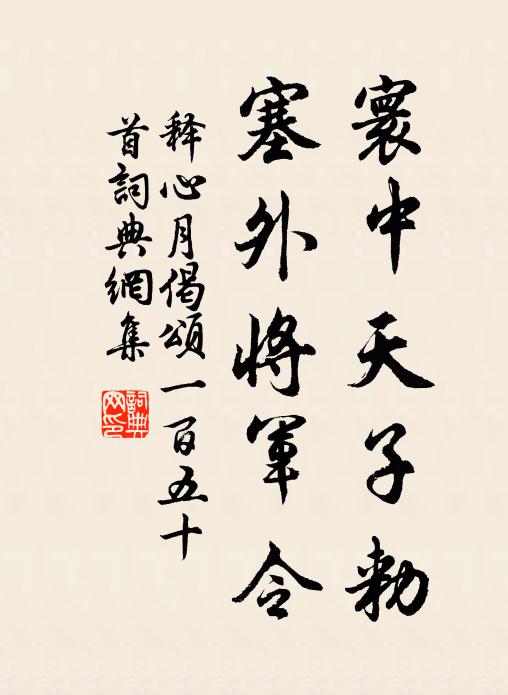 寰中天子勅
塞外將軍令
释心月偈頌一百五十
首詞典網集
詞典
网印